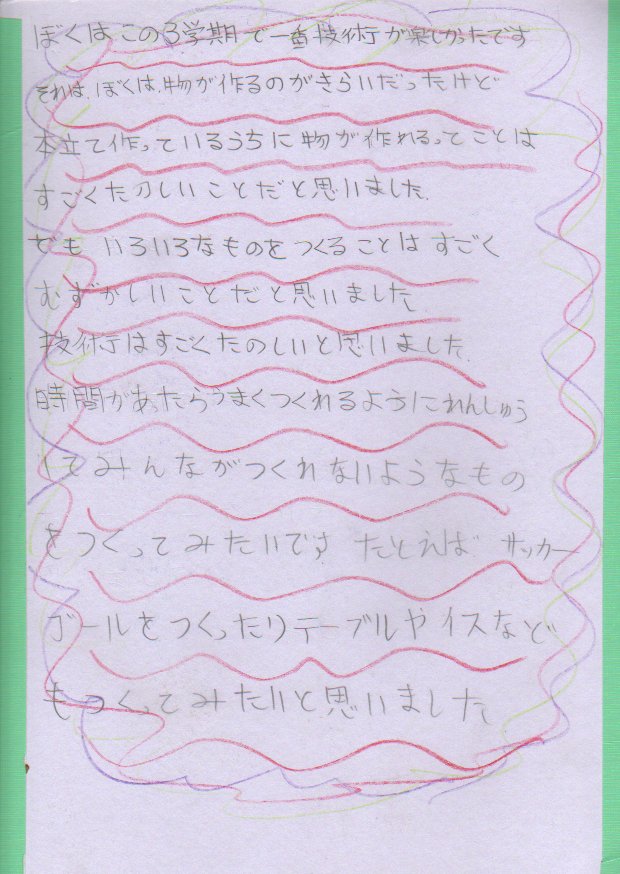 ぼくはこの3学期で一番技術が楽しかったです
それは、ぼくは、物が作るのがきらいだったけど
本立て作っているうちに物が作れるってことは
すごくたのしいことだと思いました。
でも いろいろなものをつくることはすごく
むずかしいことだと思いました
技術はすごくたのしいと思いました.
時間があったらうまくつくれるようにれんしゅう
してみんながつくれないようなもの
をつくってみたいです たとえば サッカー
ゴールをつくったりテーブルやイスなど
もつくってみたいと思いました